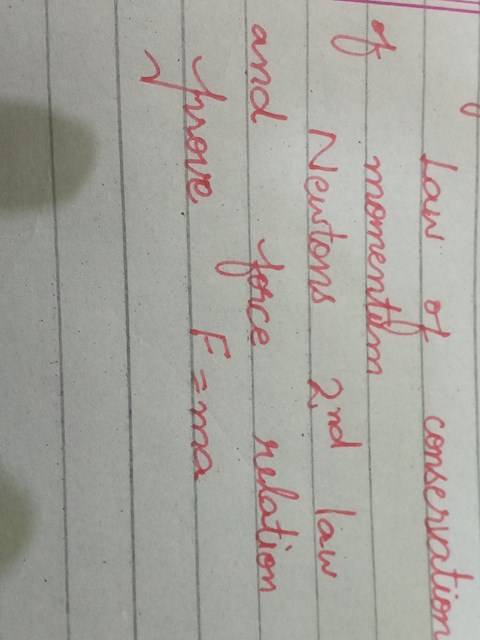 Law of conservation
of momentum
Newtons 2nd law
and force relation
prove F=ma